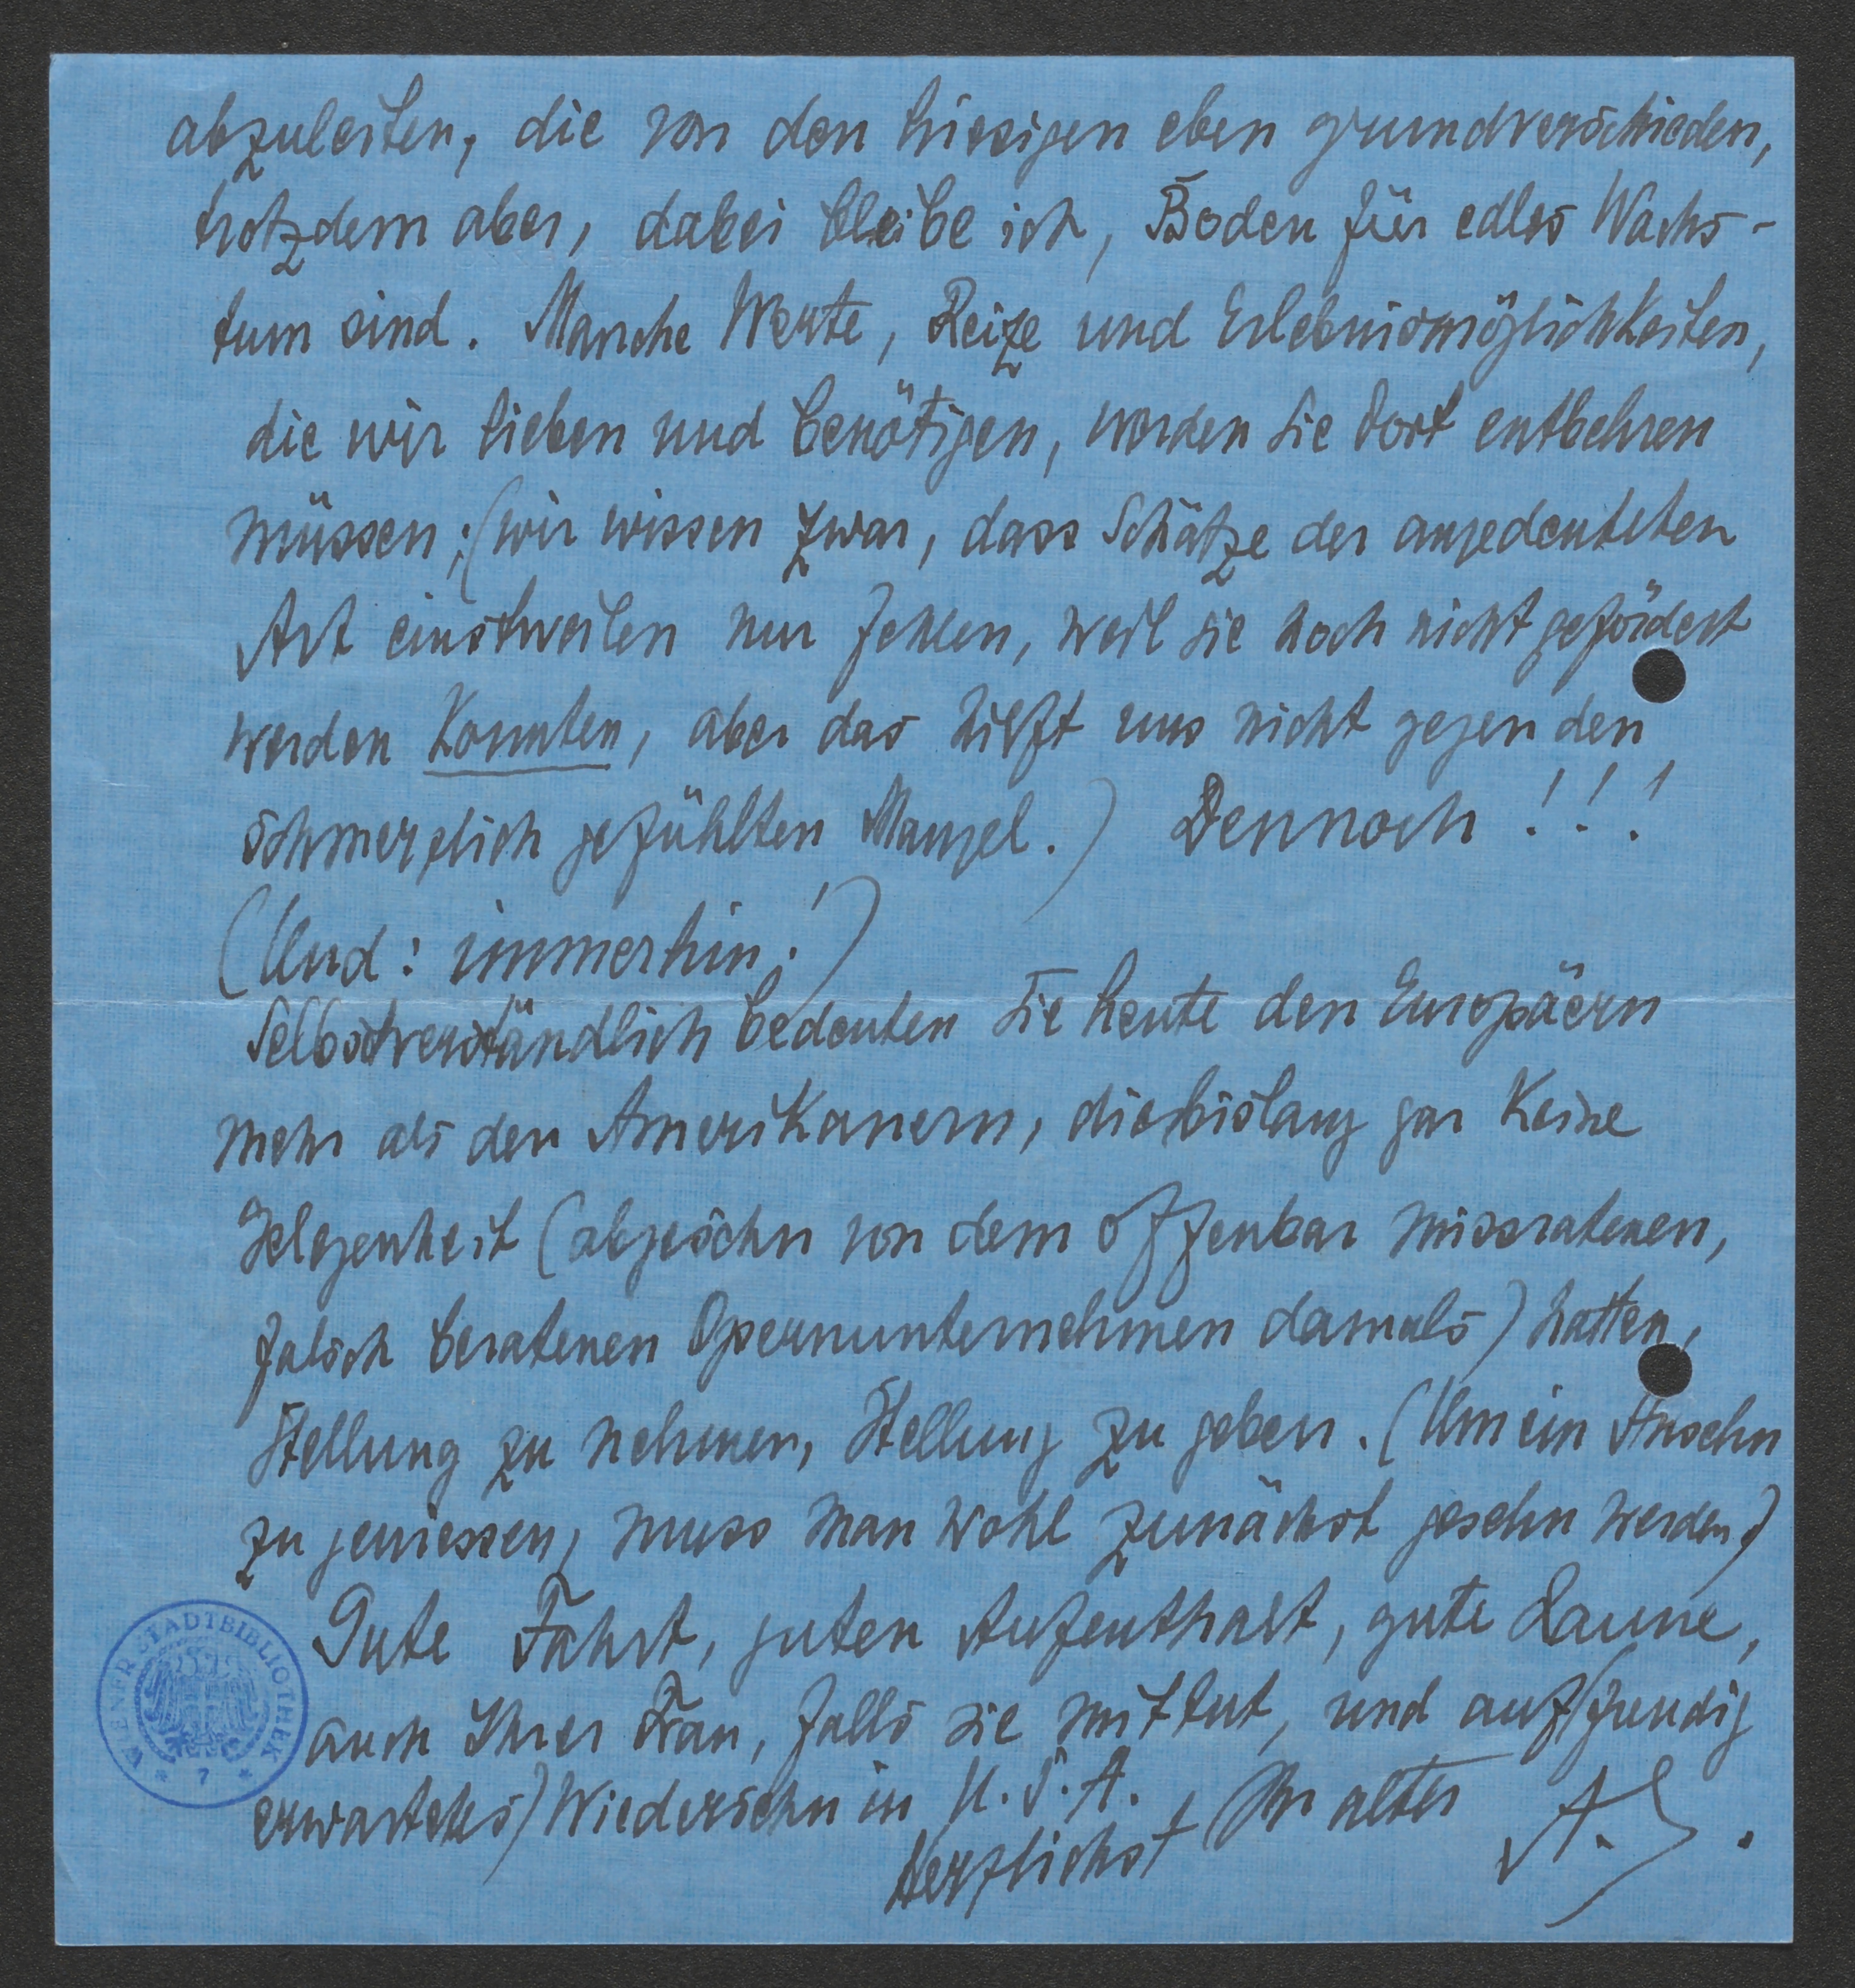 abzuleiten, die von den hiesigen eben grundverschieden,
trotzdem aber, dabei bleibe ich, Boden für edles Wachs-
tum sind. Manche Werte, Reize und Erlebnismöglichkeiten,
die wir lieben und benötigen, werden Sie dort entbehren
müssen; (wir wissen zwar, dass Schätze der angedeuteten
Art einstweilen nur fehlen, weil sie noch nicht gefördert
werden konnten, aber das hilft uns nicht gegen den
schmerzlich gefühlten Mangel.) Dennoch !!!
(Und: immerhin!)
Selbstverständlich bedeuten Sie heute den Europäern
mehr als den Amerikanern, die bislang gar keine
Gelegenheit (abgesehn von dem offenbar missratenen,
falsch beratenen Opernunternehmen damals) hatten,
Stellung zu nehmen, Stellung zu geben. (Um ein Ansehn
zu geniessen, muss man wohl zunächst gesehn werden.)
Gute Fahrt, guten Aufenthalt, gute Laune,
auch Ihrer Frau, falls sie mittut, und auf (freudig
erwartetes) Wiedersehn in U.S.A.
Herzlichst Ihr alter A.S.
WIENER STADTBIBLIOTHEK
* 7 *